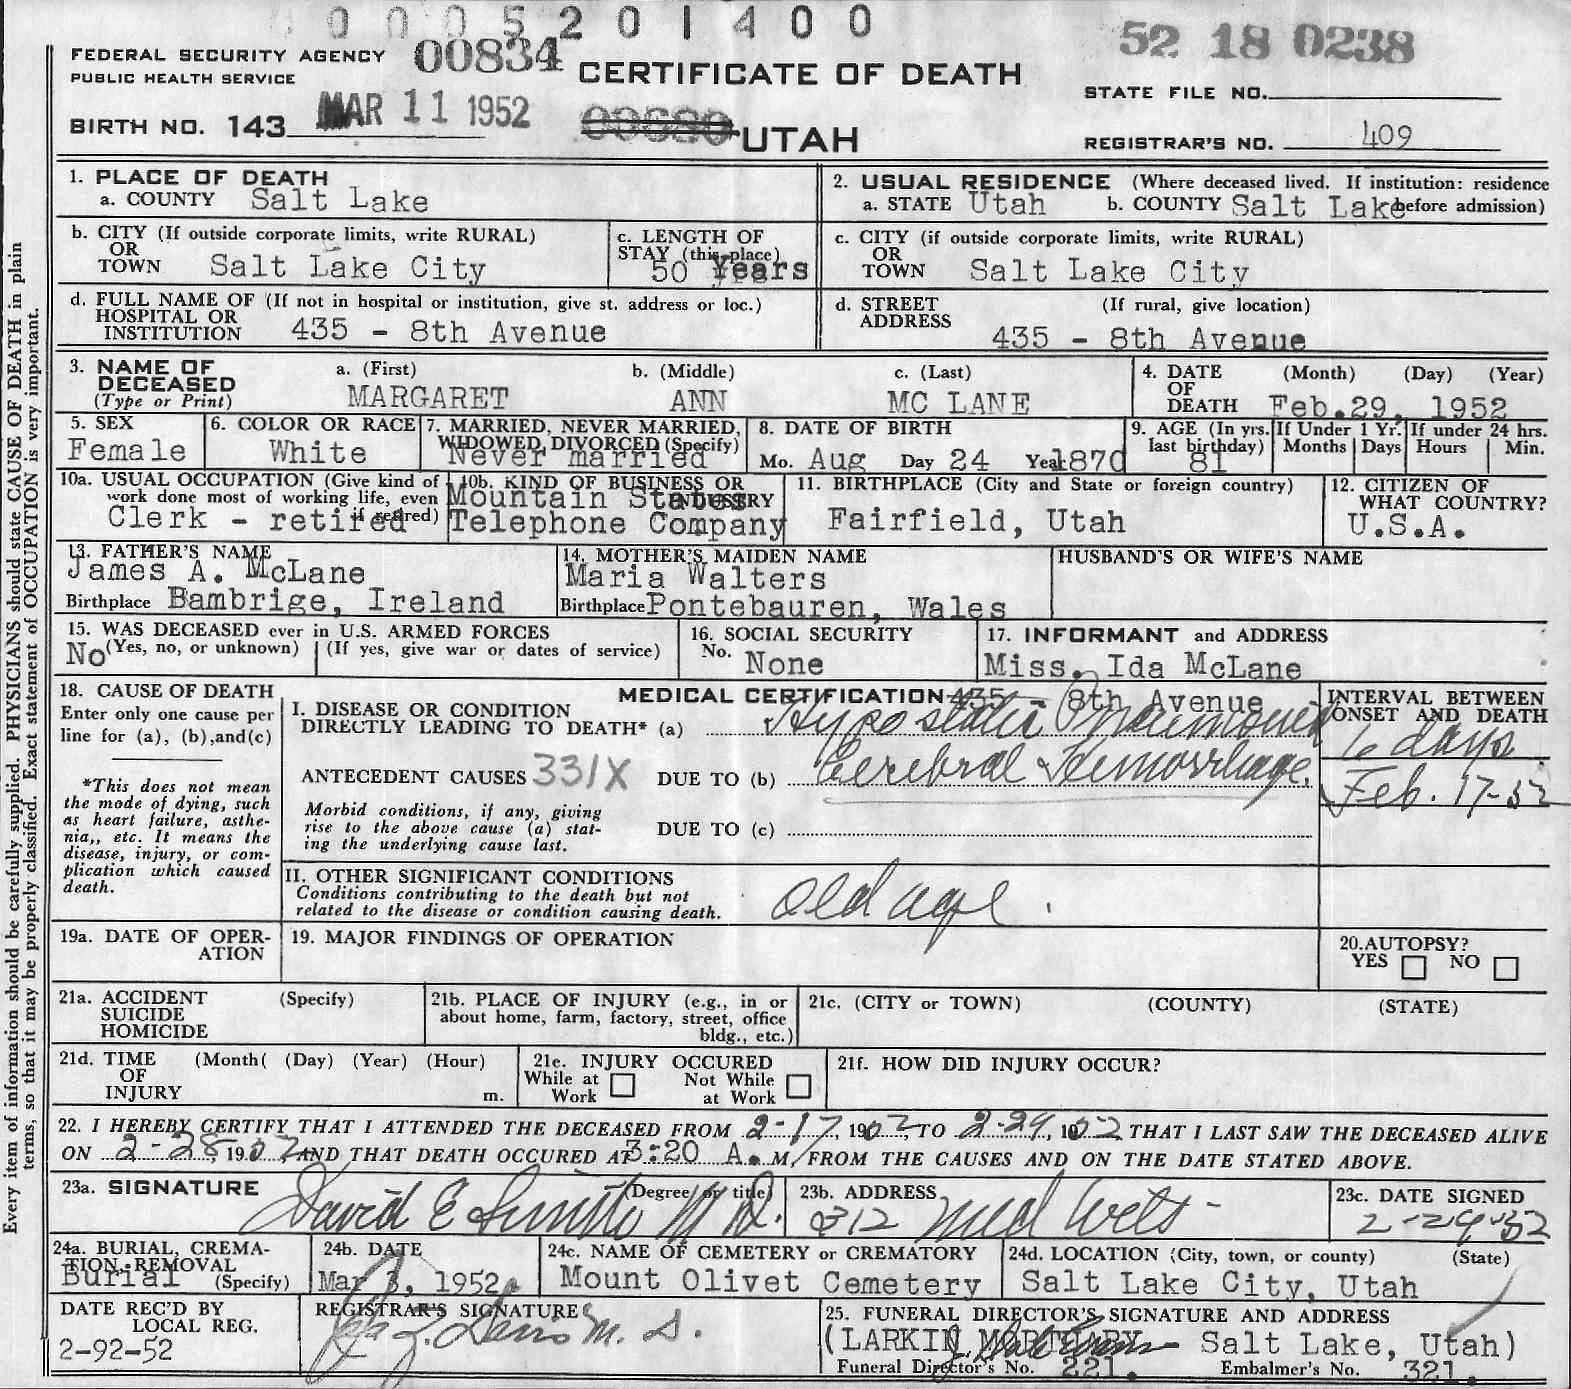 0 0 0 5 2 0 1 4 0 0
FEDERAL SECURITY AGENCY 00834 52 18 0238
PUBLIC HEALTH SERVICE CERTIFICATE OF DEATH
STATE FILE NO.
MAR 11 1952
BIRTH NO. 143 UTAH
REGISTRAR'S NO. 409
Every item of information should be carefully supplied. PHYSICIANS should state CAUSE OF DEATH in plain
terms, so that it may be properly classified. Exact statement of OCCUPATION is very important.
1. PLACE OF DEATH
a. COUNTY Salt Lake
2. USUAL RESIDENCE (Where deceased lived. If institution: residence
a. STATE Utah b. COUNTY Salt Lake before admission)
b. CITY (If outside corporate limits, write RURAL)
OR
TOWN Salt Lake City
c. LENGTH OF
STAY (this place)
50 Years
c. CITY (if outside corporate limits, write RURAL)
OR
TOWN Salt Lake City
d. FULL NAME OF (If not in hospital or institution, give st. address or loc.)
HOSPITAL OR
INSTITUTION 435 - 8th Avenue
d. STREET (If rural, give location)
ADDRESS 435 - 8th Avenue
3. NAME OF a. (First) b. (Middle) c. (Last)
DECEASED
(Type or Print) MARGARET ANN MC LANE
4. DATE (Month) (Day) (Year)
OF
DEATH Feb.29, 1952
5. SEX
Female
6. COLOR OR RACE
White
7. MARRIED, NEVER MARRIED,
WIDOWED, DIVORCED (Specify)
Never married
8. DATE OF BIRTH
Mo. Aug Day 24 Year 1870
9. AGE (In yrs.
last birthday)
81
If Under 1 Yr.
Months Days
If under 24 hrs.
Hours Min.
10a. USUAL OCCUPATION (Give kind of
work done most of working life, even
if retired)
Clerk - retired
10b. KIND OF BUSINESS OR
INDUSTRY
Mountain States
Telephone Company
11. BIRTHPLACE (City and State or foreign country)
Fairfield, Utah
12. CITIZEN OF
WHAT COUNTRY?
U.S.A.
13. FATHER'S NAME
James A. McLane
Birthplace Bambrige, Ireland
14. MOTHER'S MAIDEN NAME
Maria Walters
Birthplace Pontebauren, Wales
HUSBAND'S OR WIFE'S NAME
15. WAS DECEASED ever in U.S. ARMED FORCES
No (Yes, no, or unknown) (If yes, give war or dates of service)
16. SOCIAL SECURITY
No. None
17. INFORMANT and ADDRESS
Miss. Ida McLane
435 - 8th Avenue
18. CAUSE OF DEATH
Enter only one cause per
line for (a), (b),and(c)
*This does not mean
the mode of dying, such
as heart failure, asthe-
nia,, etc. It means the
disease, injury, or com-
plication which caused
death.
MEDICAL CERTIFICATION
I. DISEASE OR CONDITION
DIRECTLY LEADING TO DEATH* (a) Hypostatic Pneumonia
ANTECEDENT CAUSES 331X DUE TO (b) Cerebral Hemorrhage.
Morbid conditions, if any, giving
rise to the above cause (a) stat-
ing the underlying cause last.
DUE TO (c)
INTERVAL BETWEEN
ONSET AND DEATH
6 days
Feb. 17-52
II. OTHER SIGNIFICANT CONDITIONS
Conditions contributing to the death but not
related to the disease or condition causing death.
old age.
19a. DATE OF OPER-
ATION
19. MAJOR FINDINGS OF OPERATION
20.AUTOPSY?
YES NO
21a. ACCIDENT (Specify)
SUICIDE
HOMICIDE
21b. PLACE OF INJURY (e.g., in or
about home, farm, factory, street, office
bldg., etc.)
21c. (CITY or TOWN) (COUNTY) (STATE)
21d. TIME (Month( (Day) (Year) (Hour)
OF
INJURY m.
21e. INJURY OCCURED
While at Work Not While at Work
21f. HOW DID INJURY OCCUR?
22. I HEREBY CERTIFY THAT I ATTENDED THE DECEASED FROM 2-17, 1952, TO 2-29, 1952 THAT I LAST SAW THE DECEASED ALIVE
ON 2-28, 1952, AND THAT DEATH OCCURED AT 3:20 A. M, FROM THE CAUSES AND ON THE DATE STATED ABOVE.
23a. SIGNATURE (Degree or title)
David E Smith M D.
23b. ADDRESS
312 Med Arts -
23c. DATE SIGNED
2-29-52
24a. BURIAL, CREMA-
TION, REMOVAL
Burial (Specify)
24b. DATE
Mar 3, 1952
24c. NAME OF CEMETERY or CREMATORY
Mount Olivet Cemetery
24d. LOCATION (City, town, or county) (State)
Salt Lake City, Utah
DATE REC'D BY
LOCAL REG.
2-92-52
REGISTRAR'S SIGNATURE
25. FUNERAL DIRECTOR'S SIGNATURE AND ADDRESS
(LARKIN MORTUARY Salt Lake, Utah)
Funeral Director's No. 221. Embalmer's No. 321.